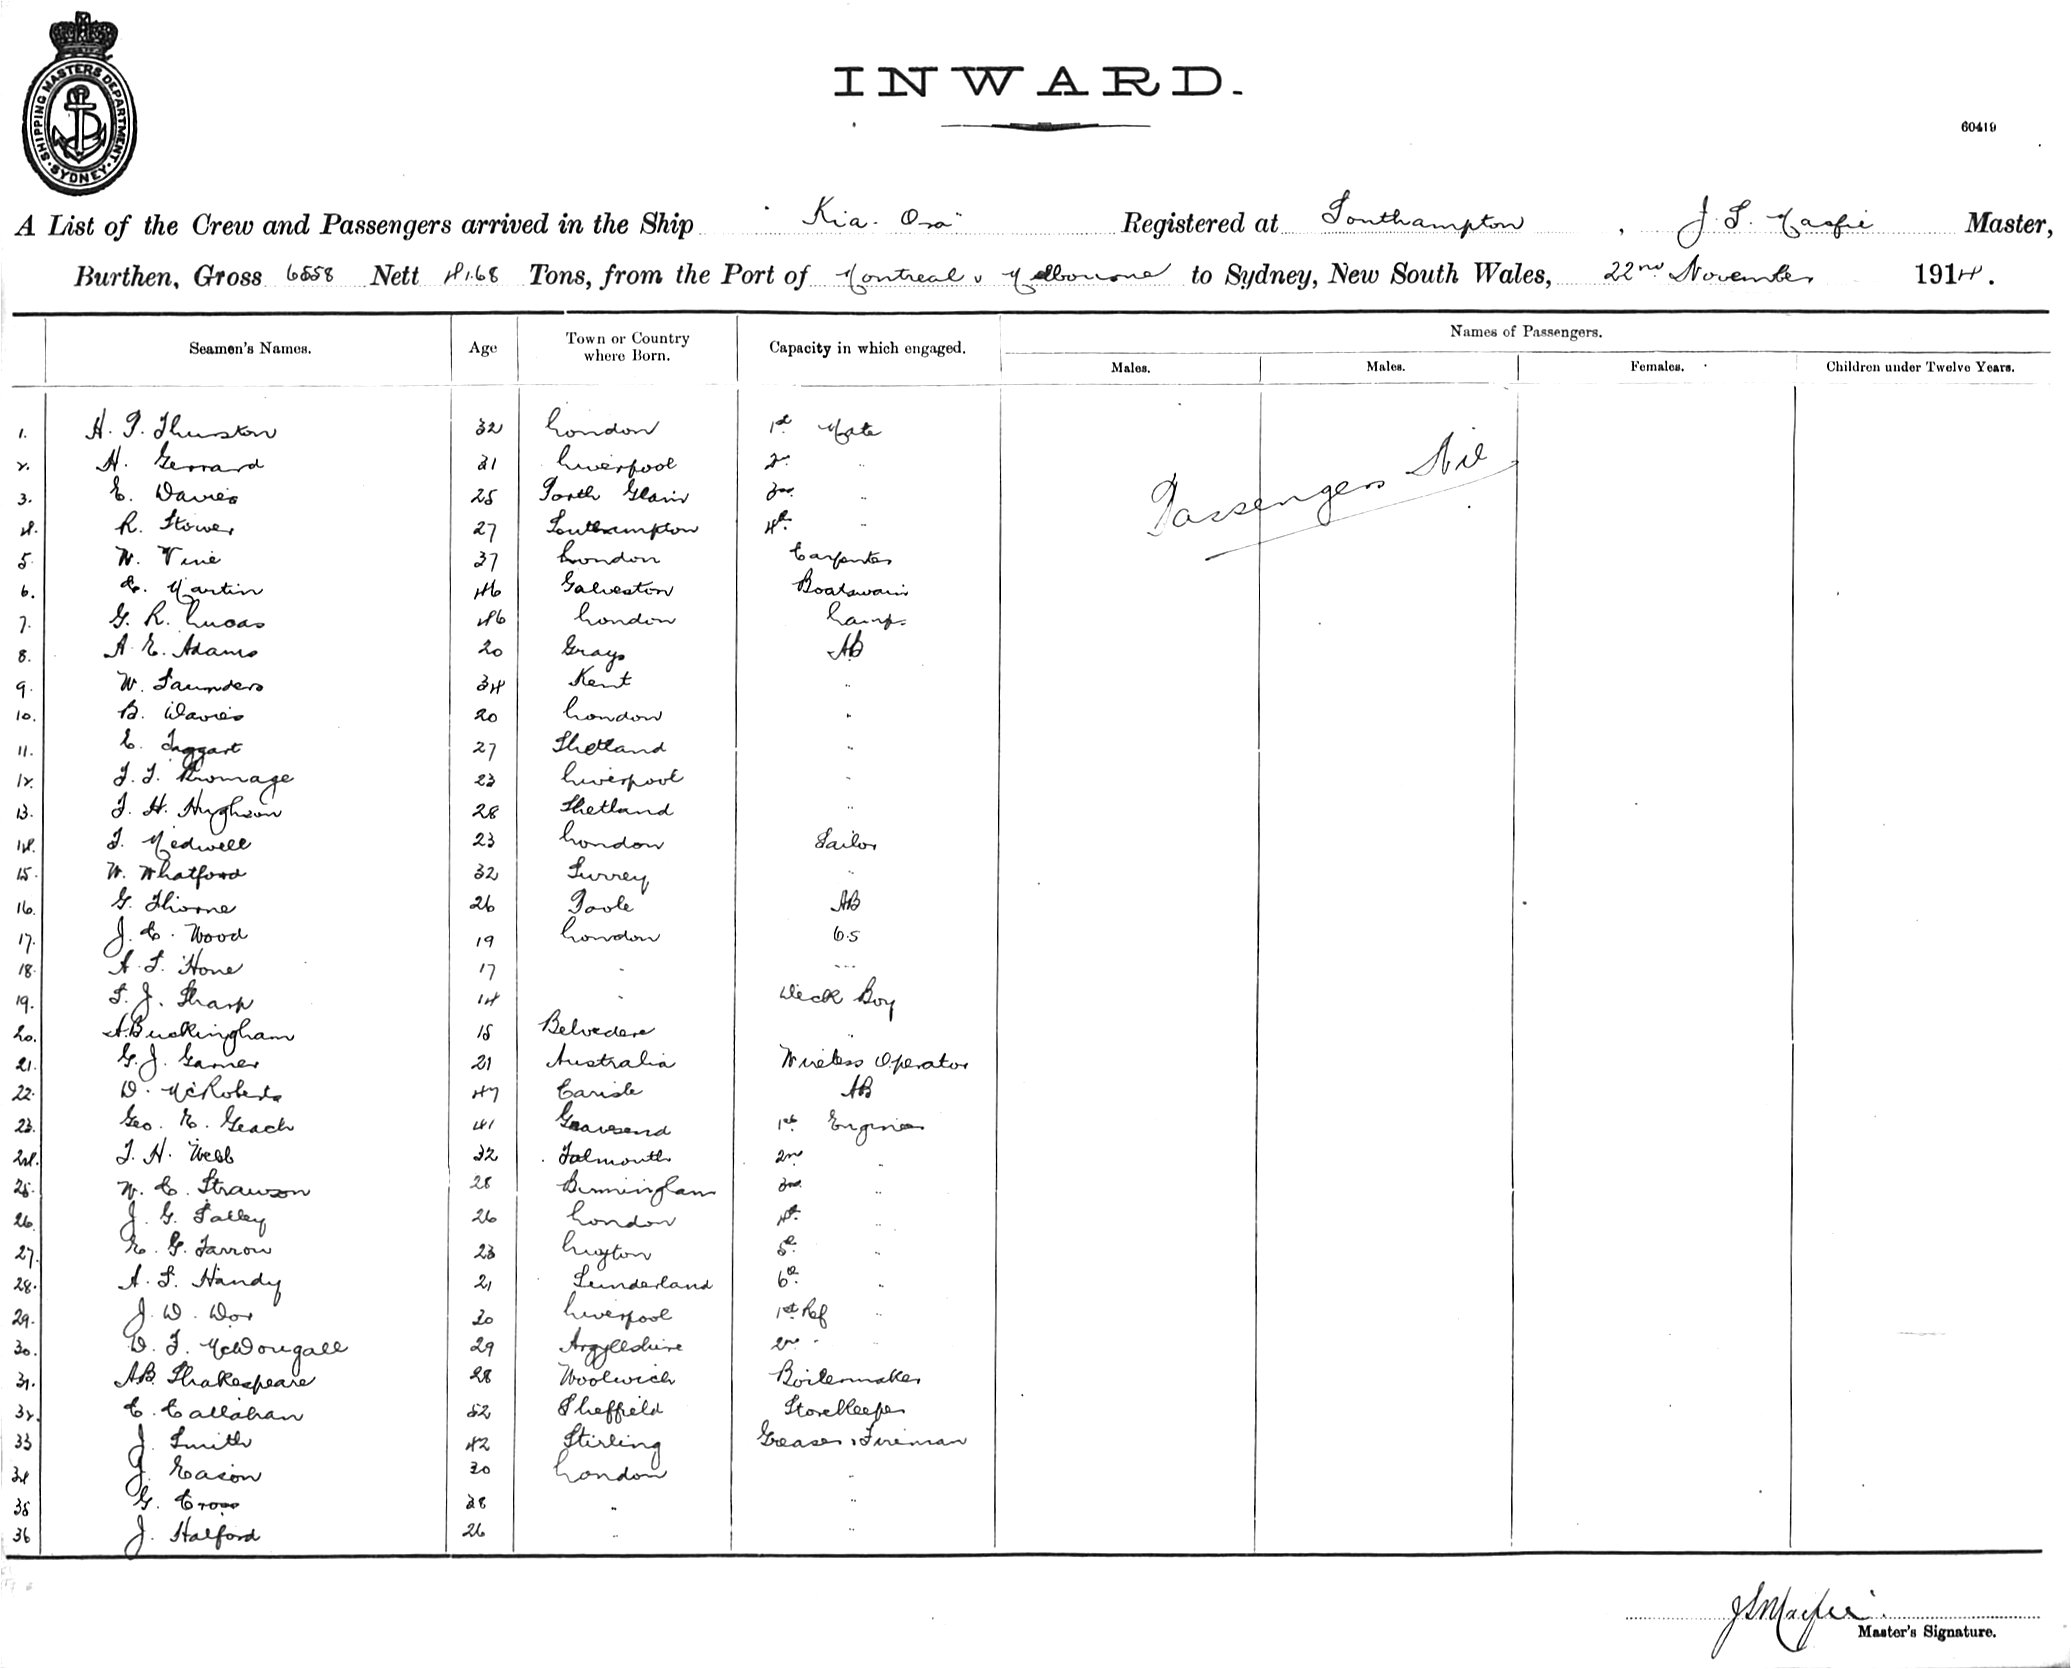 SHIPPING MASTERS DEPARTMENT SYDNEY
INWARD.
60419
A List of the Crew and Passengers arrived in the Ship "Kia-Ora" Registered at Southampton, J. S. Macfie Master,
Burthen, Gross 6558 Nett 4168 Tons, from the Port of Montreal v Melbourne to Sydney, New South Wales, 22nd November 1914.
Seamen's Names. Age Town or Country where Born. Capacity in which engaged. Names of Passengers.
Males. Males. Females. Children under Twelve Years.
Passengers Nil
1. H. P. Thurston 32 London 1st Mate
2. H. Gerrard 31 Liverpool 2nd "
3. E. Davies 25 Porth Glain 3rd "
4. R. Stower 27 Southampton 4th "
5. W. Vine 37 London Carpenter
6. C. Martin 46 Galveston Boatswain
7. G. R. Lucas 46 London Lamps
8. A. E. Adams 20 Grays AB
9. W. Saunders 34 Kent "
10. B. Davies 20 London "
11. E. Taggart 27 Shetland "
12. T. T. 23 Liverpool "
13. T. H. Hughson 28 Shetland "
14. T. Medwell 23 London Sailor
15. W. Whatford 32 Surrey "
16. G. Thorne 26 Poole AB
17. J. C. Wood 19 London O.S
18. A. S. Hone 17 " "
19. S. J. Sharp 14 " Deck Boy
20. A. Buckingham 15 Belvedere "
21. G. J. Garner 21 Australia Wireless Operator
22. D. McRoberts 47 Carisle AB
23. Geo. E. Geach 41 Gravesend 1st Engineer
24. T. H. Webb 32 Falmouth 2nd "
25. W. C. Strawson 28 Birmingham 3rd "
26. J. G. Salley 26 London 4th "
27. E. G. Farrow 23 5th "
28. A. S. Handy 21 Sunderland 6th "
29. J. W. Dor 30 Liverpool 1st Ref "
30. D. T. McDougall 29 Argylleshire 2nd " "
31. AB. Shakespeare 28 Woolwich Boilermaker
32. C. Callahan 52 Sheffield Storekeeper
33 J. Smith 42 Stirling Greaser & Fireman
34 J. Eason 30 London "
35 G. Cross 38 " "
36 J. Halford 26 " "
J S Macfie
Master's Signature.